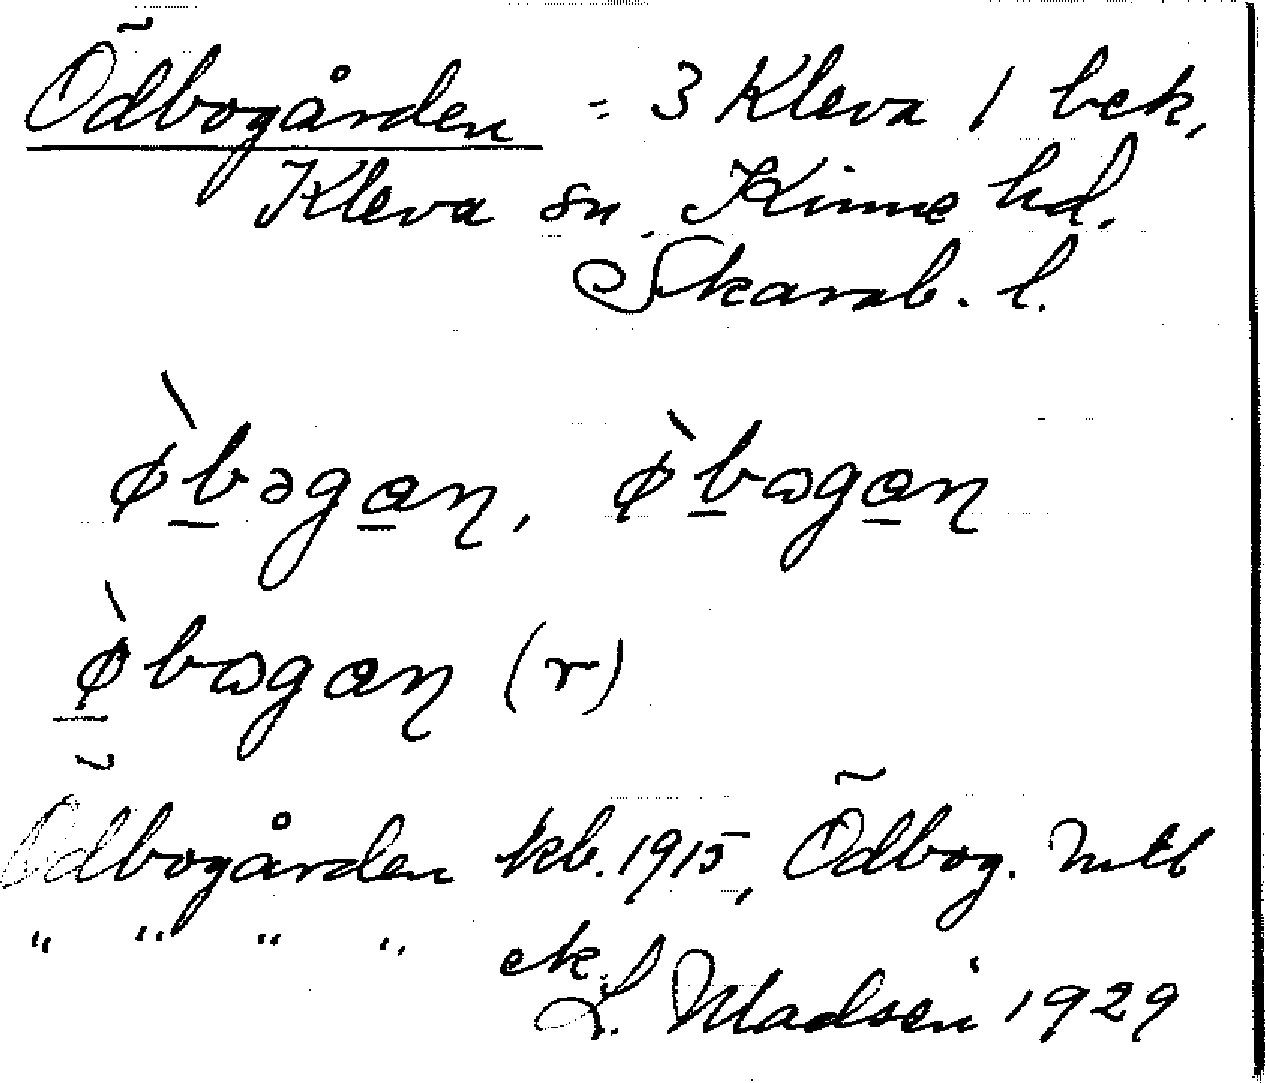 Ödbogården = 3 Kleva 1 bek,
Kleva sn. Kinne hd.
Skarab. l.
ø̀bəgan, ø̀bωgan
ø̀bωgan (r)
Ödbogården kb. 1915, Ödbog. mtl
" " " " ek.
L. Madsén 1929